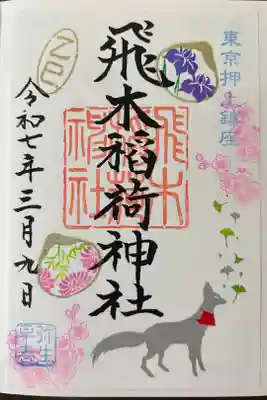 東京押上鎮座
飛木稲荷神社
飛木
稲荷
神社
乙巳
令和七年三月九日
弥生